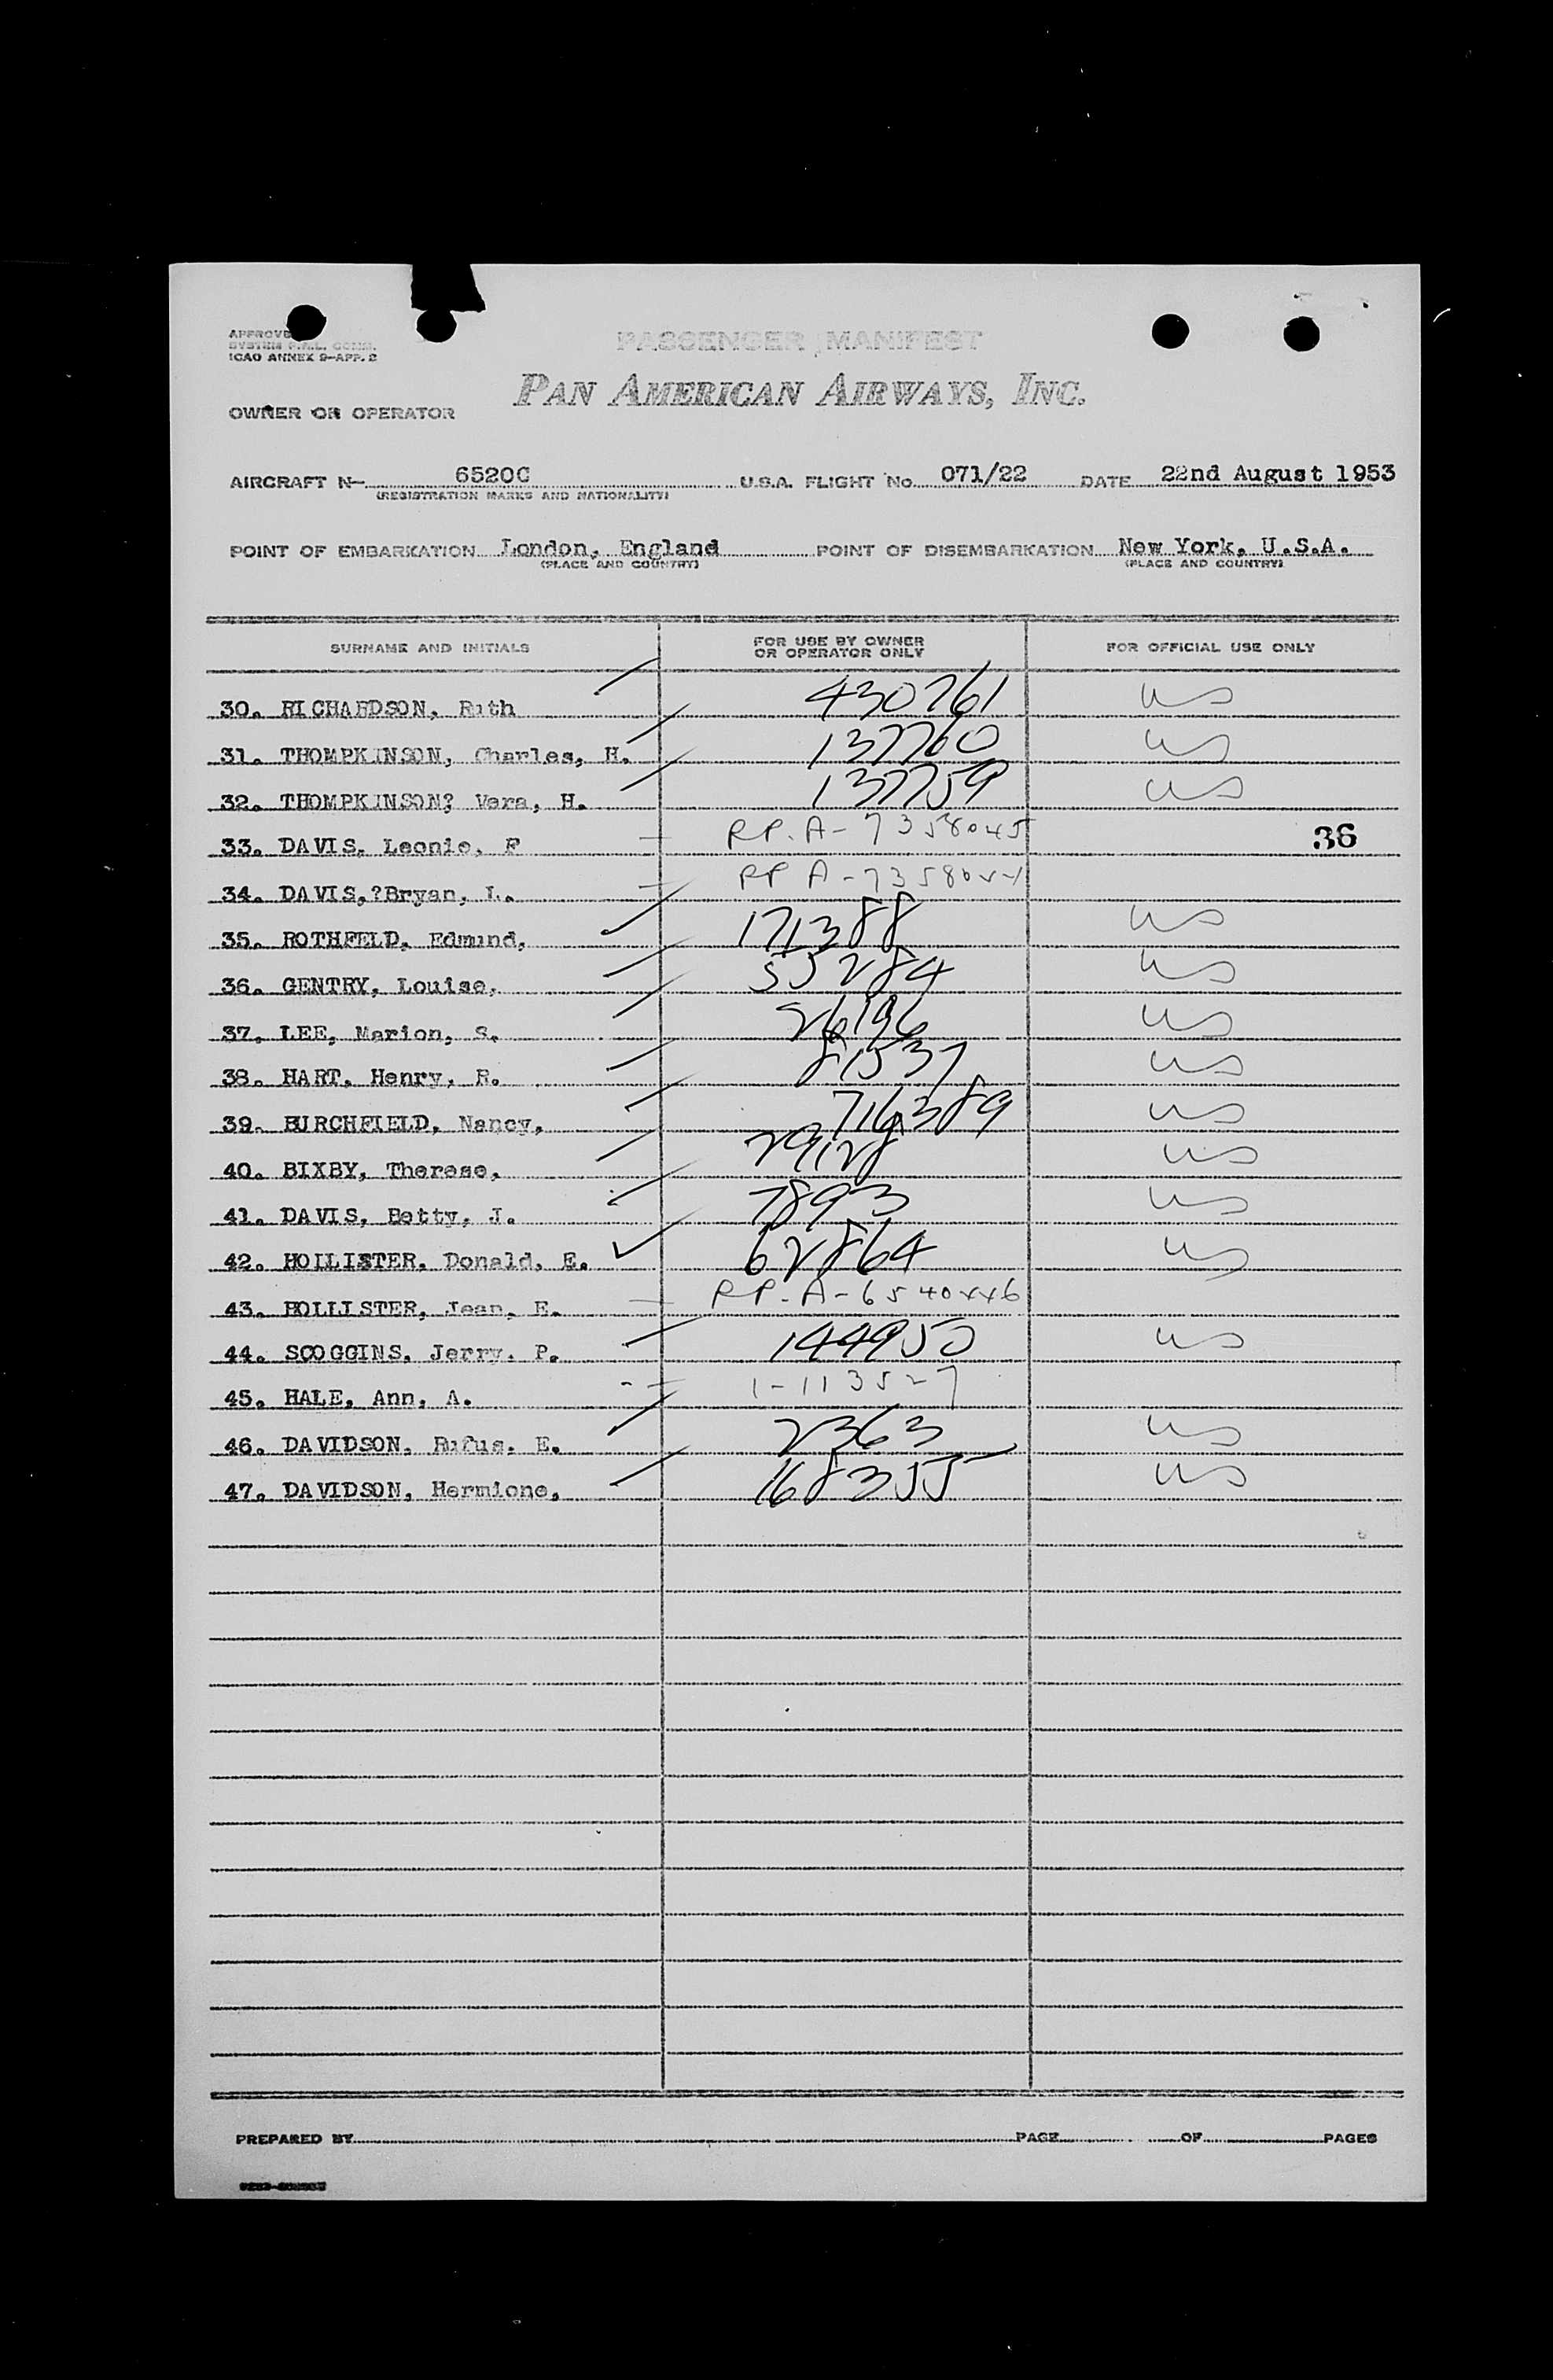 PASSENGER MANIFEST
ICAO ANNEX 9-APP. 2
PAN AMERICAN AIRWAYS, INC.
OWNER OR OPERATOR
AIRCRAFT N- 6520C U.S.A. FLIGHT No. 071/22 DATE 22nd August 1953
(REGISTRATION MARKS AND NATIONALITY)
POINT OF EMBARKATION London, England POINT OF DISEMBARKATION New York, U.S.A.
(PLACE AND COUNTRY) (PLACE AND COUNTRY)
SURNAME AND INITIALS FOR USE BY OWNER OR OPERATOR ONLY FOR OFFICIAL USE ONLY
30. RICHARDSON, Ruth 430761 US
31. THOMPKINSON, Charles, H. 137760 US
32. THOMPKINSON? Vera, H. 137759 US
33. DAVIS, Leonie, F RP. A-7358045 36
34. DAVIS,?Bryan, L. RP A-
35. ROTHFELD, Edmund, 171388 US
36. GENTRY, Louise, 55284 US
37. LEE, Marion, S. 26196 US
38. HART, Henry, R. 81537 US
39. BURCHFIELD, Nancy, 716389 US
40. BIXBY, Therese, 29128 US
41. DAVIS, Betty, J. 7893 US
42. HOLLISTER, Donald, E. 62864 US
43. HOLLISTER, Jean, E. RP-A-
44. SCOGGINS, Jerry, P. 144950 US
45. HALE, Ann, A.
46. DAVIDSON, Rufus, E. 2363 US
47. DAVIDSON, Hermione, 168355 US
PREPARED BY PAGE OF PAGES